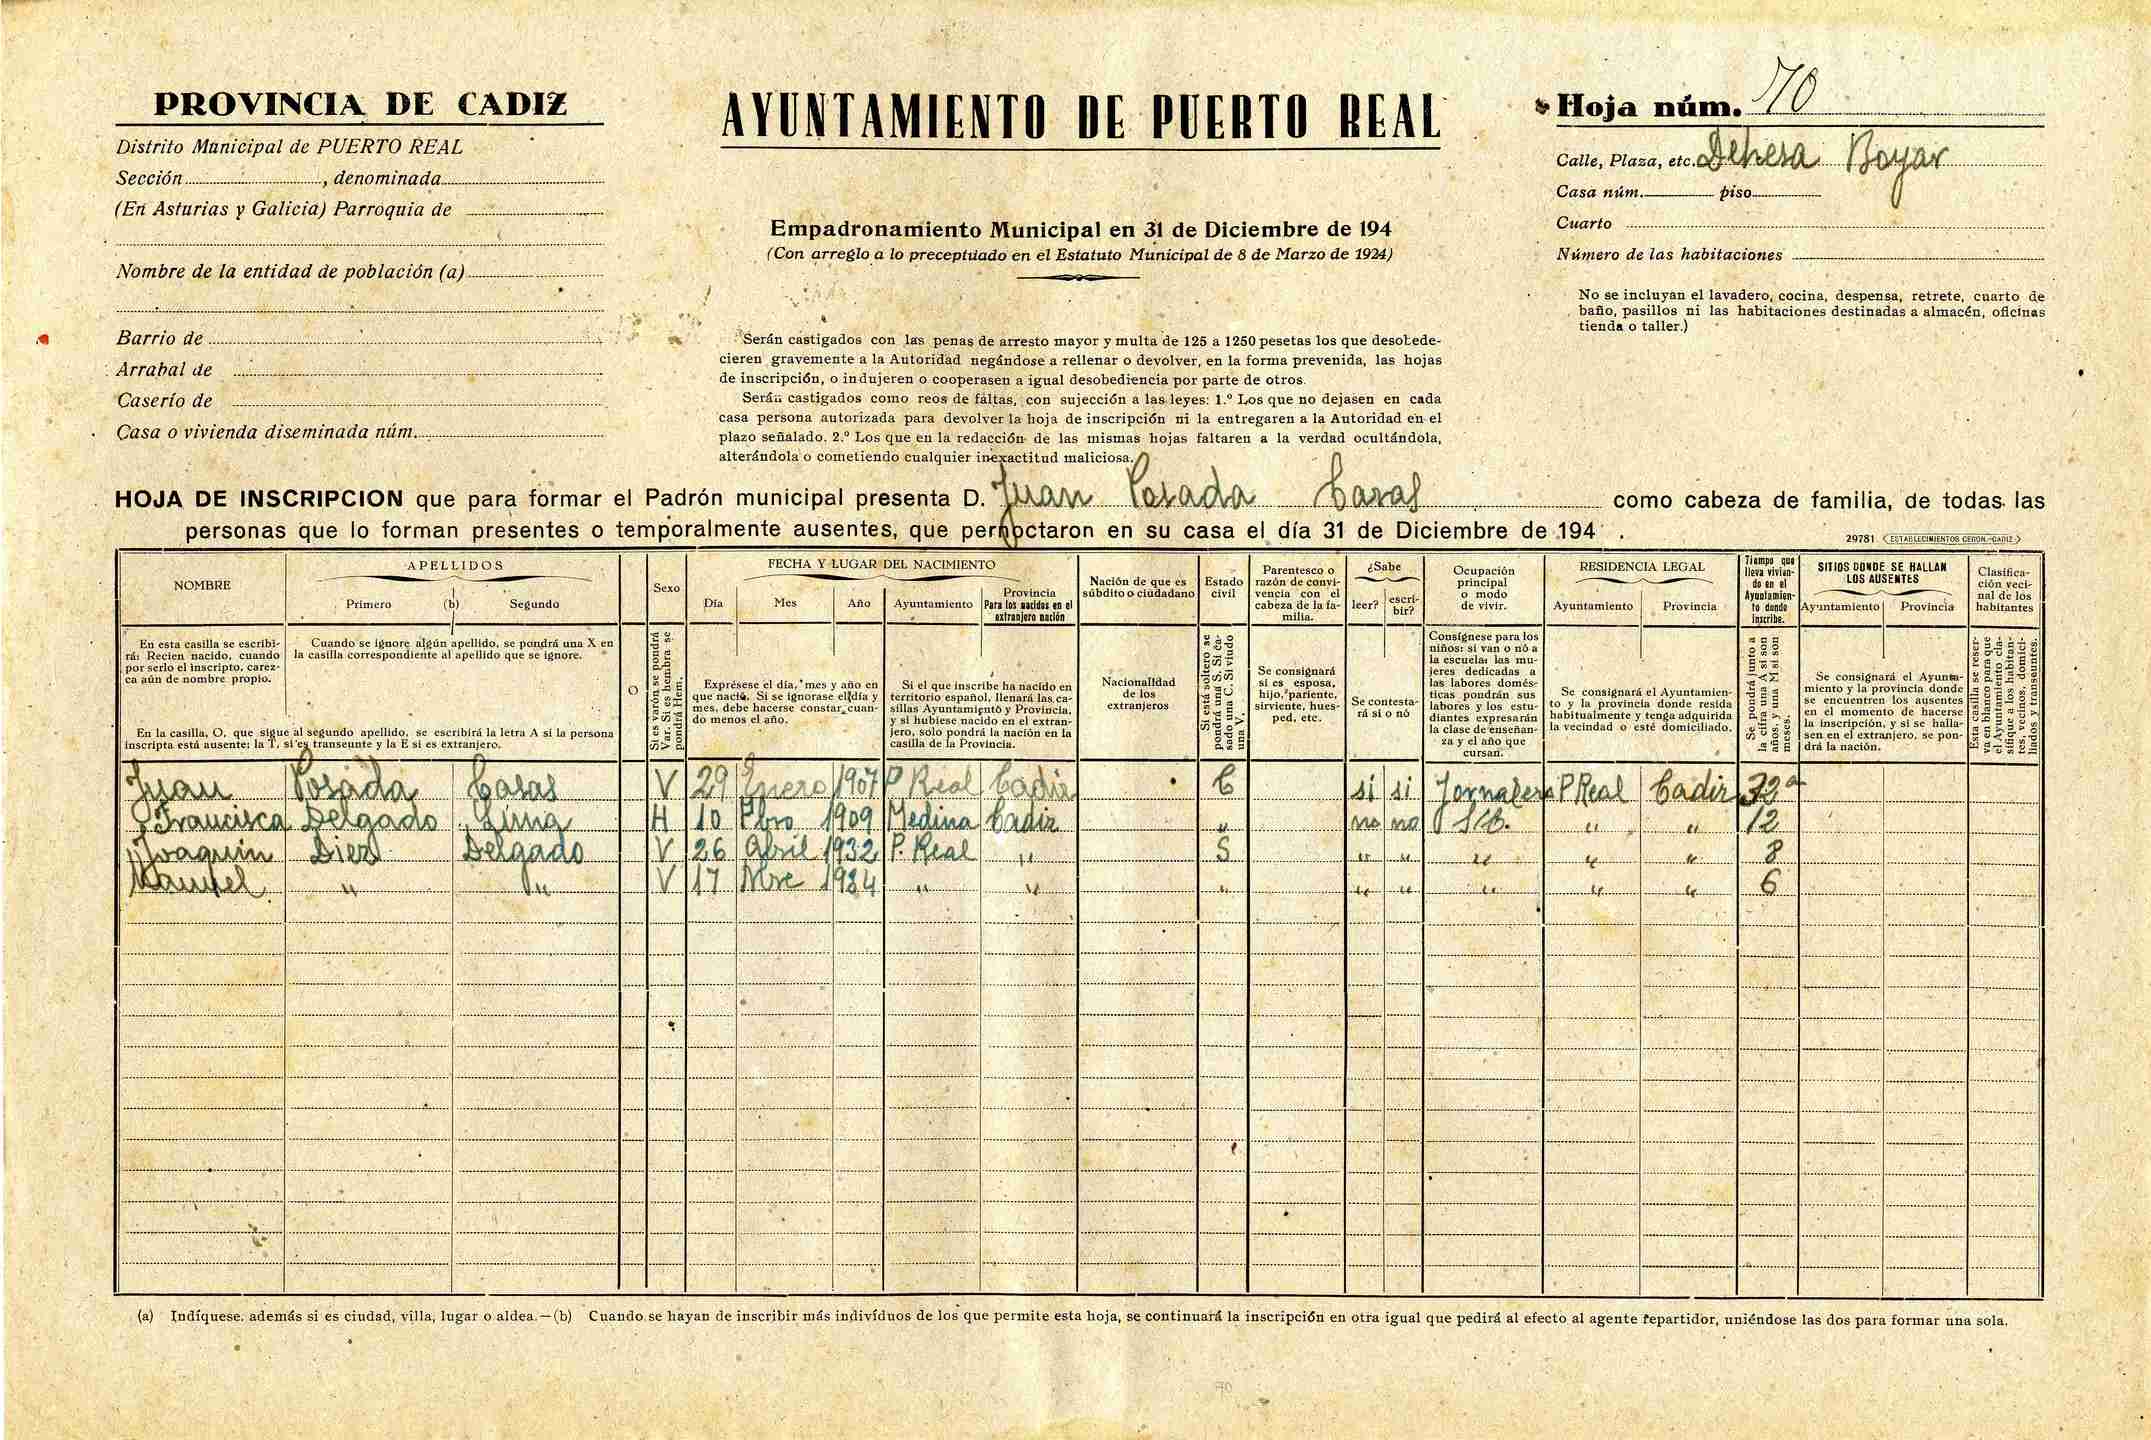 PROVINCIA DE CADIZ
Distrito Municipal de PUERTO REAL
Sección , denominada
(En Asturias y Galicia) Parroquia de
Nombre de la entidad de población (a)
Barrio de
Arrabal de
Caserío de
Casa o vivienda diseminada núm.
AYUNTAMIENTO DE PUERTO REAL
Empadronamiento Municipal en 31 de Diciembre de 194
(Con arreglo a lo preceptuado en el Estatuto Municipal de 8 de Marzo de 1924)
Serán castigados con las penas de arresto mayor y multa de 125 a 1250 pesetas los que desobede-
cieren gravemente a la Autoridad negándose a rellenar o devolver, en la forma prevenida, las hojas
de inscripción, o indujeren o cooperasen a igual desobediencia por parte de otros.
Serán castigados como reos de faltas, con sujección a las leyes: 1.º Los que no dejasen en cada
casa persona autorizada para devolver la hoja de inscripción ni la entregaren a la Autoridad en el
plazo señalado. 2.º Los que en la redacción de las mismas hojas faltaren a la verdad ocultándola,
alterándola o cometiendo cualquier inexactitud maliciosa.
Hoja núm. 70
Calle, Plaza, etc. Dehesa Boyar
Casa núm. piso
Cuarto
Número de las habitaciones
No se incluyan el lavadero, cocina, despensa, retrete, cuarto de
baño, pasillos ni las habitaciones destinadas a almacén, oficinas
tienda o taller.)
HOJA DE INSCRIPCION que para formar el Padrón municipal presenta D. Juan Posada Casas como cabeza de familia, de todas las
personas que lo forman presentes o temporalmente ausentes, que pernoctaron en su casa el día 31 de Diciembre de 194 .
29781 ESTABLECIMIENTOS CERON.-CADIZ
NOMBRE
APELLIDOS
Primero (b) Segundo
O
Sexo
FECHA Y LUGAR DEL NACIMIENTO
Día Mes Año Ayuntamiento
Provincia
Para los nacidos en el
extranjero nación
Nación de que es
súbdito o ciudadano
Estado
civil
Parentesco o
razón de convi-
vencia con el
cabeza de la fa-
milia.
¿Sabe
leer? escri-
bir?
Ocupación
principal
o modo
de vivir.
RESIDENCIA LEGAL
Ayuntamiento Provincia
Tiempo que
lleva vivien-
do en el
Ayuntamien-
to donde
inscribe.
SITIOS DONDE SE HALLAN
LOS AUSENTES
Ayuntamiento Provincia
Clasifica-
ción veci-
nal de los
habitantes
En esta casilla se escribi-
rá: Recien nacido, cuando
por serlo el inscripto, carez-
ca aún de nombre propio.
Cuando se ignore algún apellido, se pondrá una X en
la casilla correspondiente al apellido que se ignore.
En la casilla, O, que sigue al segundo apellido, se escribirá la letra A si la persona
inscripta está ausente; la T, si es transeunte y la E si es extranjero.
Si es varón se pondrá
Var. Si es hembra se
pondrá Hem.
Expresese el día, mes y año en
que nació. Si se ignorase el día y
mes, debe hacerse constar cuan-
do menos el año.
Si el que inscribe ha nacido en
territorio español, llenará las ca-
sillas Ayuntamiento y Provincia,
y si hubiese nacido en el extran-
jero, sólo pondrá la nación en la
casilla de la Provincia.
Nacionalidad
de los
extranjeros
Si está soltero se
pondrá una S. Si ca-
sado una C. Si viudo
una V.
Se consignará
si es esposa,
hijo, pariente,
sirviente, hues-
ped, etc.
Se contesta-
rá si o nó
Consígnese para los
niños: si van o nó a
la escuela: las mu-
jeres dedicadas a
las labores domés-
ticas pondrán sus
labores y los estu-
diantes expresarán
la clase de enseñan-
za y el año que
cursan.
Se consignará el Ayuntamien-
to y la provincia donde resida
habitualmente y tenga adquirida
la vecindad o esté domiciliado.
Se pondrá junto a
la cifra una A si son
años, y una M si son
meses.
Se consignará el Ayunta-
miento y la provincia donde
se encuentren los ausentes
en el momento de hacerse
la inscripción, y si se halla-
sen en el extranjero, se pon-
drá la nación.
Esta casilla se reser-
va en blanco para que
el Ayuntamiento cla-
sifique a los habitan-
tes, vecinos, domici-
liados y transeuntes.
Juan Posada Casas V 29 Enero 1907 P Real Cadiz C si si Jornalero P Real Cadiz 32 a
Francisca Delgado H 10 Fbro 1909 Medina Cadiz " no no " " 12
Joaquin Diez Delgado V 26 Abril 1932 P. Real " S " " " " " 8
Manuel " " V 17 Nbre 1934 " " " " " " " " 6
(a) Indíquese. además si es ciudad, villa, lugar o aldea.—(b) Cuando se hayan de inscribir más indivíduos de los que permite esta hoja, se continuará la inscripción en otra igual que pedirá al efecto al agente repartidor, uniéndose las dos para formar una sola.
70